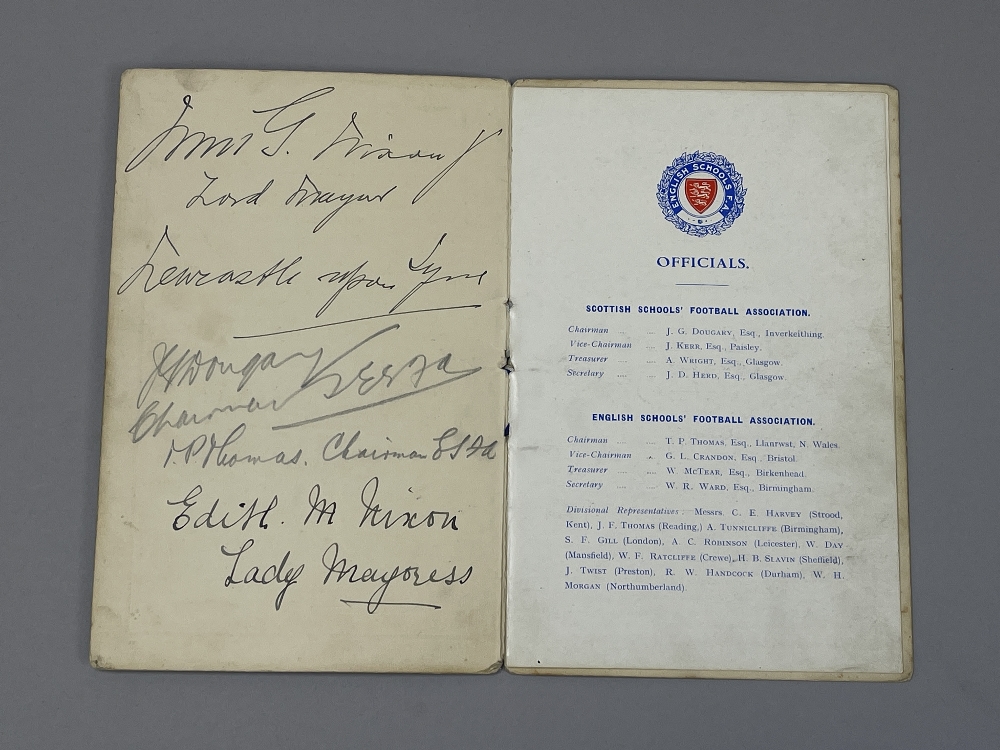 G. Nixon
Lord Mayor
Newcastle upon Tyne
JGDougary
Chairman
T.P.Thomas. Chairman ESFA
Edith. M Nixon
Lady Mayoress
ENGLISH SCHOOLS F.A.
OFFICIALS.
SCOTTISH SCHOOLS' FOOTBALL ASSOCIATION.
Chairman .. .... J. G. DOUGARY, Esq., Inverkeithing.
Vice-Chairman .... J. KERR, Esq., Paisley.
Treasurer .... .... A. WRIGHT, Esq., Glasgow.
Secretary .... .... J. D. HERD, Esq., Glasgow.
ENGLISH SCHOOLS' FOOTBALL ASSOCIATION.
Chairman .... .... T. P. THOMAS, Esq., Llanrwst, N. Wales.
Vice-Chairman .... G. L. CRANDON, Esq., Bristol.
Treasurer .... .... W. McTEAR, Esq., Birkenhead.
Secretary .... .... W. R. WARD, Esq., Birmingham.
Divisional Representatives: Messrs. C. E. HARVEY (Strood,
Kent), J. F. THOMAS (Reading,) A. TUNNICLIFFE (Birmingham),
S. F. GILL (London), A. C. ROBINSON (Leicester), W. DAY
(Mansfield), W. F. RATCLIFFE (Crewe), H. B. SLAVIN (Sheffield),
J. TWIST (Preston), R. W. HANDCOCK (Durham), W. H.
MORGAN (Northumberland).